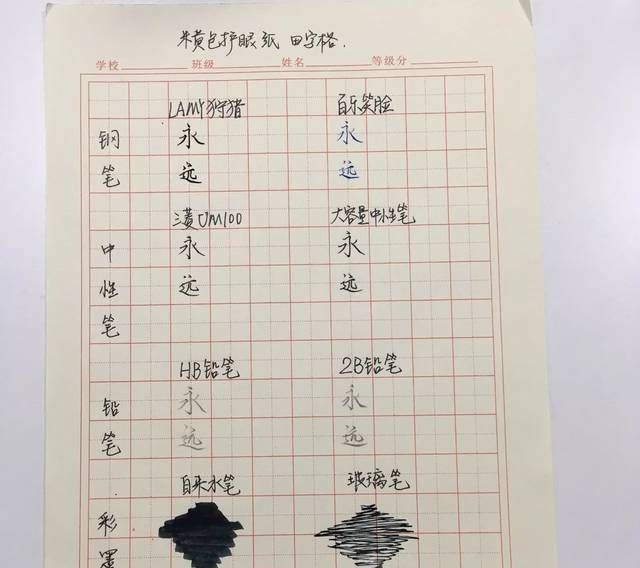 米黄色护眼纸 田字格.
学校 班级 姓名 等级分
LAMY狩猎 百乐笑脸
钢 永 永
笔 远 远
三菱UM100 大容量中性笔
中 永 永
性 远 远
笔
HB铅笔 2B铅笔
铅 永 永
笔 远 远
自来水笔 玻璃笔
彩
墨